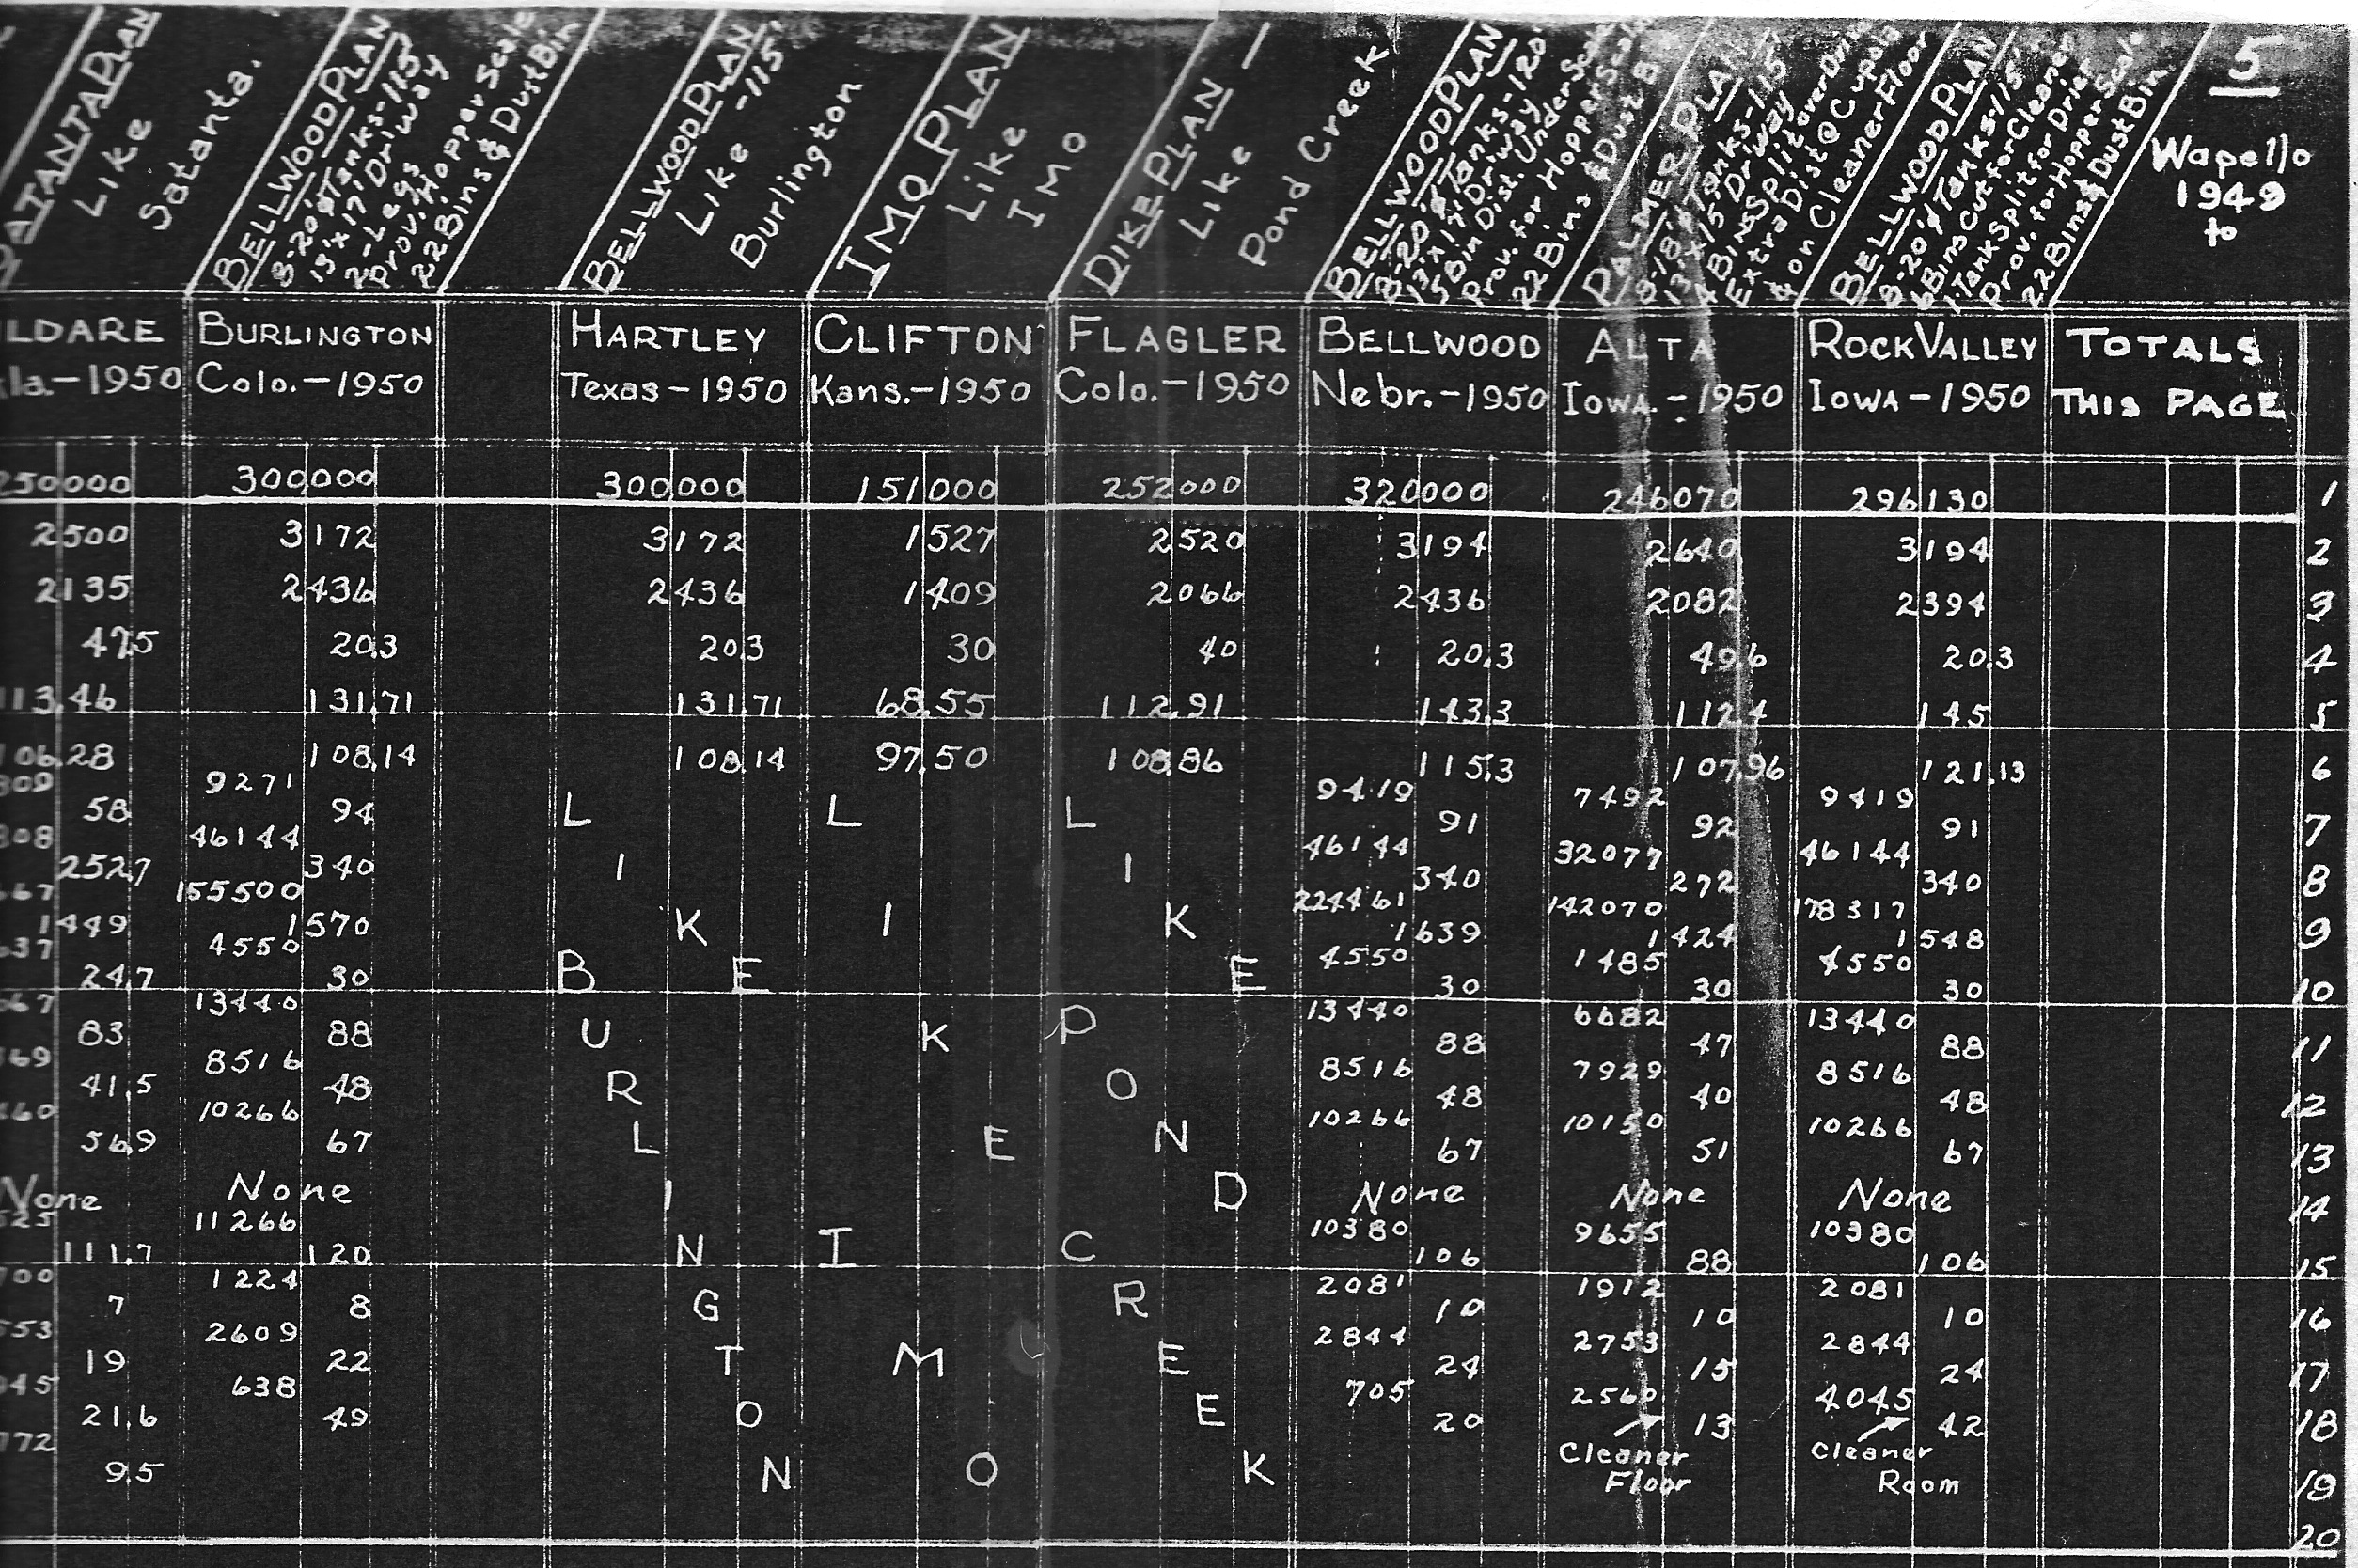 SATANTA PLAN
Like
Satanta.
BELLWOOD PLAN
8-20'ϕ Tanks-115'
13'x17' Driway
2-Legs
Prov. Hopper Scale
22 Bins & Dust Bin
BELLWOOD PLAN
Like -115'
Burlington
IMO PLAN
Like
IMO
DIKE PLAN -
Like
Pond Creek
BELLWOOD PLAN
8-20'ϕ Tanks-120'
13'x17' Driway
15 Bin Dist. Under Scale
Prov. for Hopper Scale
22 Bins & Dust B
PALMER PLAN
8-18'ϕ Tanks-115'
13'x15' Driway
4 Bins Split over Driway
Extra Dist @ Cupola
& on Cleaner Floor
BELLWOOD PLAN
8-20'ϕ Tanks 115'
6 Bins Cut for Cleaner
1 Tank Split for Drier
Prov. for Hopper Scale
22 Bins & Dust Bin
5
Wapello
1949
to
LDARE BURLINGTON HARTLEY CLIFTON FLAGLER BELLWOOD ALTA ROCK VALLEY TOTALS
la.-1950 Colo.-1950 Texas-1950 Kans.-1950 Colo.-1950 Nebr.-1950 Iowa.-1950 Iowa-1950 THIS PAGE
250000 300000 300000 151000 252000 320000 246070 296130 1
2500 3172 3172 1527 2520 3194 2640 3194 2
2135 2436 2436 1409 2066 2436 2082 2394 3
47.5 20.3 20.3 30 40 20.3 49.6 20.3 4
113.46 131.71 131.71 68.55 112.91 143.3 112.4 145 5
106.28 108.14 108.14 97.50 108.86 115.3 107.96 121.13 6
309 9271 9419 7492 9419
58 94 L L L 91 92 91 7
308 46144 46144 32077 46144
252.7 340 I I 340 272 340 8
667 155500 224461 142070 178317
1449 1570 K I K 1639 1424 1548 9
637 4550 4550 1485 4550
24.7 30 B E E 30 30 30 10
667 13440 13440 6682 13440
83 88 U K P 88 47 88 11
369 8516 8516 7929 8516
41.5 48 R O 48 40 48 12
260 10266 10266 10150 10266
56.9 67 L E N 67 51 67 13
None None I D None None None 14
525 11266 10380 9655 10380
111.7 120 N I C 106 88 106 15
700 1224 2081 1912 2081
7 8 G R 10 10 10 16
553 2609 2844 2753 2844
19 22 T M E 24 15 24 17
945 638 705 2560 4045
21.6 49 O E 20 13 42 18
772 Cleaner Cleaner
9.5 N O K Floor Room 19
20